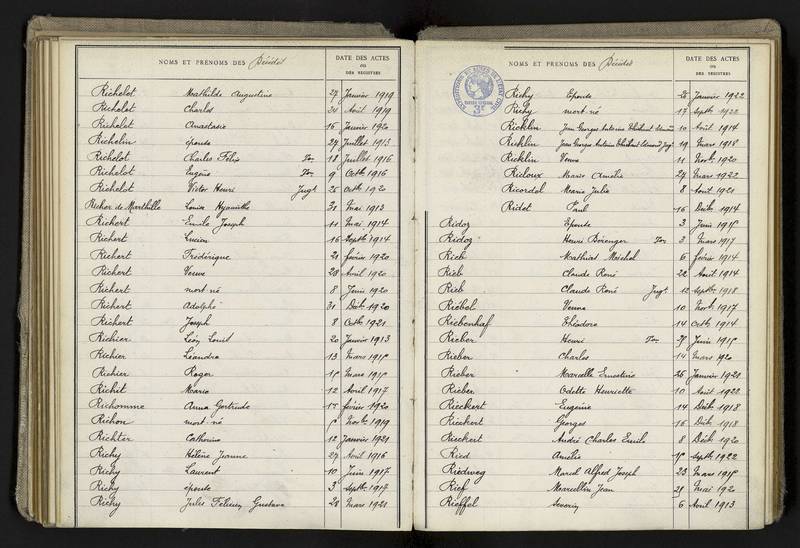 NOMS ET PRÉNOMS DES Décédés
DATE DES ACTES
OU
DES REGISTRES
Richelot Mathilde Augustine 27 Janvier 1919
Richelot Charles 31 Août 1919
Richelet Anastasie 16 Janvier 1920
Richelin épouse 24 Juillet 1913
Richelot Charles Félix Ton 18 Juillet 1916
Richelot Eugène Ton 9 Octb 1916
Richelot Victor Henri Jugt 25 Octb 1920
Richer de Marthille Louise Hyacinthe 31 Mai 1913
Richert Emile Joseph 11 Mai 1914
Richert Lucien 16 Septb 1914
Richert Frédérique 21 février 1920
Richert Veuve 28 Avril 1920
Richert mort né 8 Juin 1920
Richert Adolphe 31 Déc 1920
Richert Joseph 8 Octb 1921
Richier Léon Louis 20 Janvier 1913
Richier Léandre 13 Mars 1915
Richier Roger 15 Mars 1915
Richit Marie 12 Avril 1917
Richomme Anna Gertrude 15 février 1920
Richon mort né 5 Novb 1919
Richter Catherine 12 Janvier 1921
Richy Hélène Jeanne 27 Août 1916
Richy Laurent 10 Juin 1917
Richy épouse 3 Septb 1917
Richy Jules Félicien Gustave 28 Mars 1921
NOMS ET PRÉNOMS DES Décédés
DATE DES ACTES
OU
DES REGISTRES
Richy Epouse 26 Janvier 1922
Richy mort né 17 Septb 1922
Ricklin Jean Georges Antoine 10 Août 1914
Ricklin Jean Georges Antoine Jugt 19 Mars 1918
Ricklin Veuve 11 Novb 1920
Ricloux Marie Amélie 24 Mars 1922
Ricordel Marie Julie 8 Août 1921
Ridet Paul 16 Déc 1914
Ridoz Epouse 3 Juin 1915
Ridoz Henri Bérenger Ton 3 Mars 1917
Rieb Mathias Meichel 6 février 1914
Rieb Claude René 22 Août 1914
Rieb Claude René Jugt 12 Septb 1918
Riébel Veuve 10 Novb 1917
Riebenhaf Théodore 14 Octb 1914
Rieber Henri Ton 25 Juin 1915
Rieber Charles 14 Mars 1920
Rieber Marcelle Ernestine 26 Janvier 1921
Rieber Odette Henriette 10 Août 1922
Rieckert Eugénie 14 Déc 1918
Rieckert Georges 16 Déc 1918
Rieckert André Charles Emile 8 Déc 1920
Ried Amélie 15 Septb 1922
Riedweg Marcel Alfred Joseph 23 Mars 1915
Rief Marcellin Jean 25 Mai 1920
Rieffel Séverin 6 Avril 1913